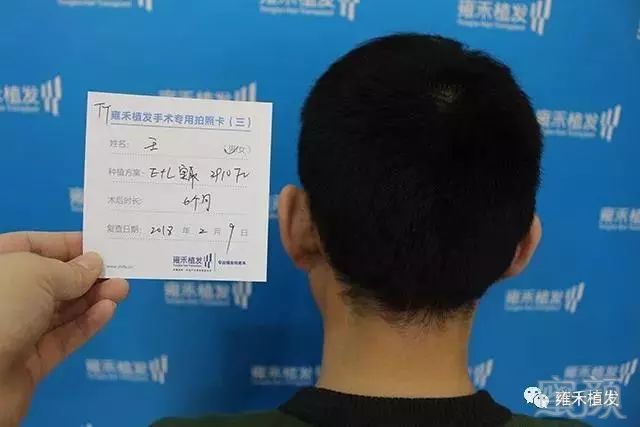 雍禾植发
雍禾植发
雍禾植发
雍禾植发手术专用拍照卡（三）
姓名： 王
种植方案： 2910FU
术后时长： 6个月
复查日期： 2018 年 2 月 9 日
雍禾植发
雍禾植发
雍禾植发
雍禾植发
雍禾植发
雍禾植发
雍禾植发
雍禾植发